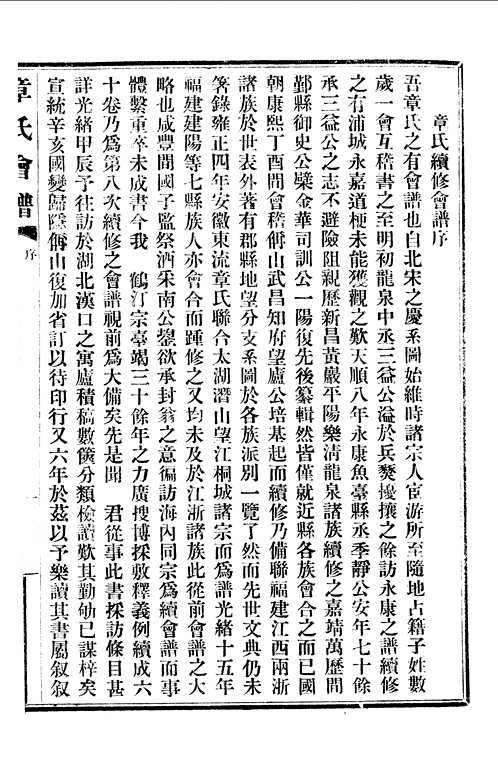 章氏續修會譜序
吾章氏之有會譜也自北宋之慶系圖始維時諸宗人宦游所至隨地占籍子姓數
歲一會互稽書之至明初龍泉中丞三益公溢於兵燹擾攘之餘訪永康之譜續修
之有浦城永嘉道梗未能獲觀之歎天順八年永康魚臺縣丞季靜公安年七十餘
承三益公之志不避險阻親歷新昌黃巖平陽樂清龍泉諸族續修之嘉靖萬歷間
鄞縣御史公檗金華司訓公一陽復先後纂輯然皆僅就近縣各族會合之而已國
朝康熙丁酉間會稽偁山武昌知府望廬公培基起而續修乃備聯福建江西兩浙
諸族於世表外著有郡縣地望分支系圖於各族派別一覽了然而先世文典仍未
箸錄雍正四年安徽東流章氏聯合太湖潛山望江桐城諸宗而爲譜光緒十五年
福建建陽等七縣族人亦會合而踵修之又均未及於江浙諸族此從前會譜之大
略也咸豐間國子監祭酒采南公鋆欲承封翁之意徧訪海內同宗爲續會譜而事
體繫重卒未成書今我 鶴汀宗臺竭三十餘年之力廣搜博採敷釋義例續成六
十卷乃爲第八次續修之會譜視前爲大備矣先是聞 君從事此書採訪條目甚
詳光緒甲辰予往訪於湖北漢口之寓廬積稿數篋分類檢讀歎其勤劬已謀梓矣
宣統辛亥國變歸隱偁山復加省訂以待印行又六年於茲以予樂讀其書屬叙叙
章氏會譜
序